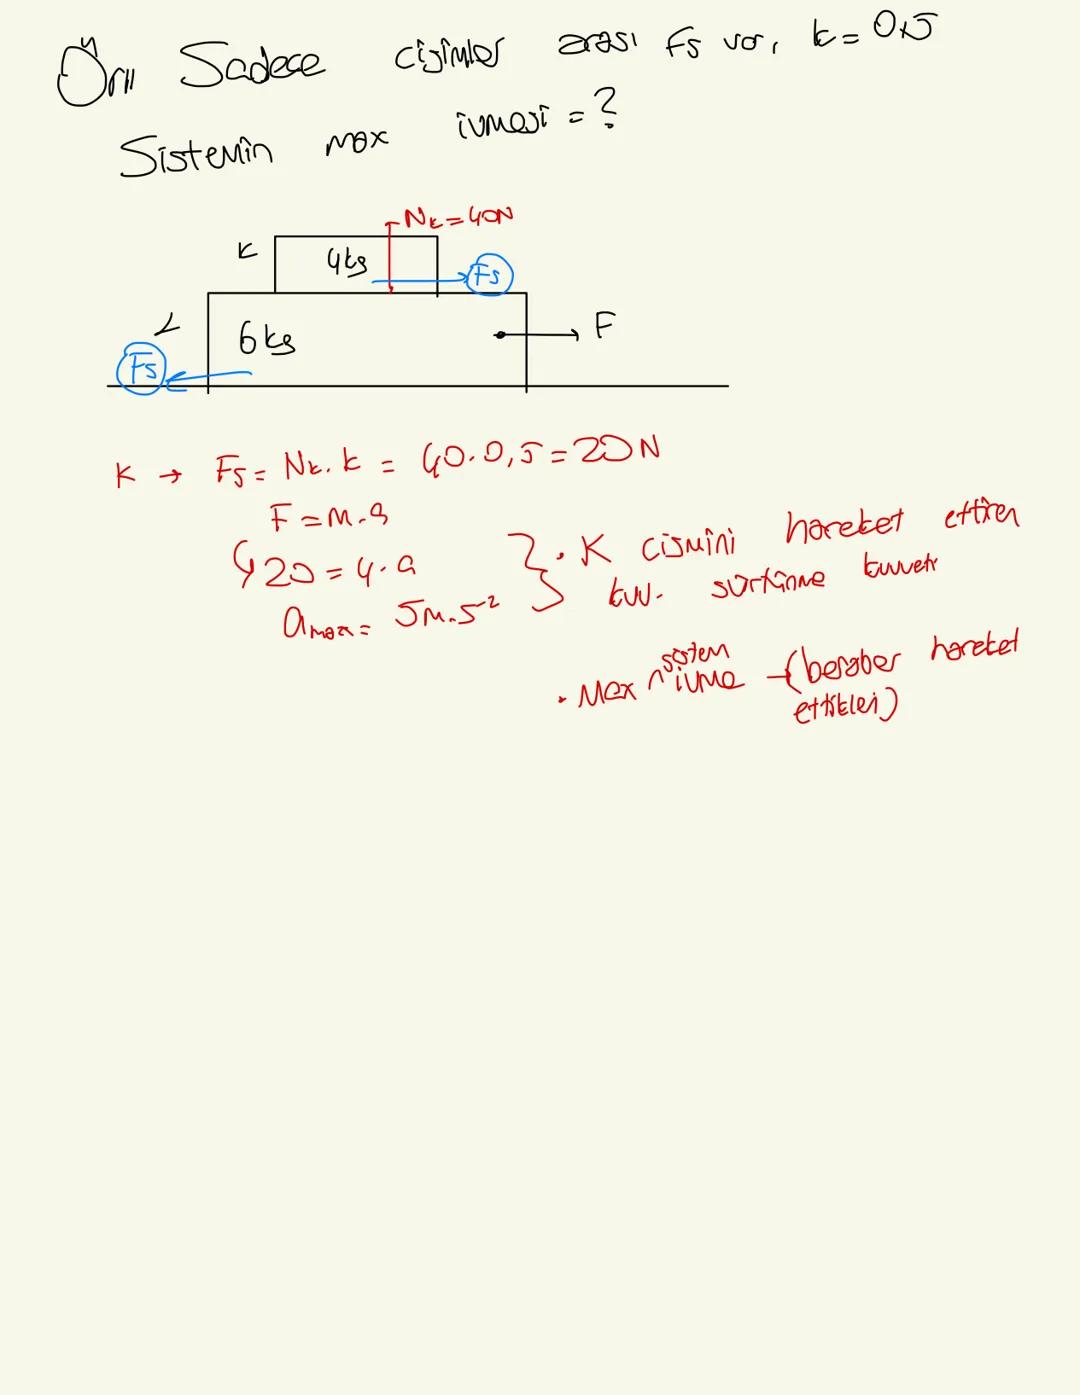 Örn Sadece cisimler arası Fs var, k = 0,5
Sistemin max ivmesi = ?
Nk = 40N
K
4kg
Fs
L
6kg
F
Fs
K → Fs = Nk . k = 40.0,5 = 20N
F = m.a
↳ 20 = 4.a
amax = 5m.s⁻²
} • K cismini hareket ettiren
kuv. sürtünme kuvveti
• Max sistem ivme → (beraber hareket
ettikleri)